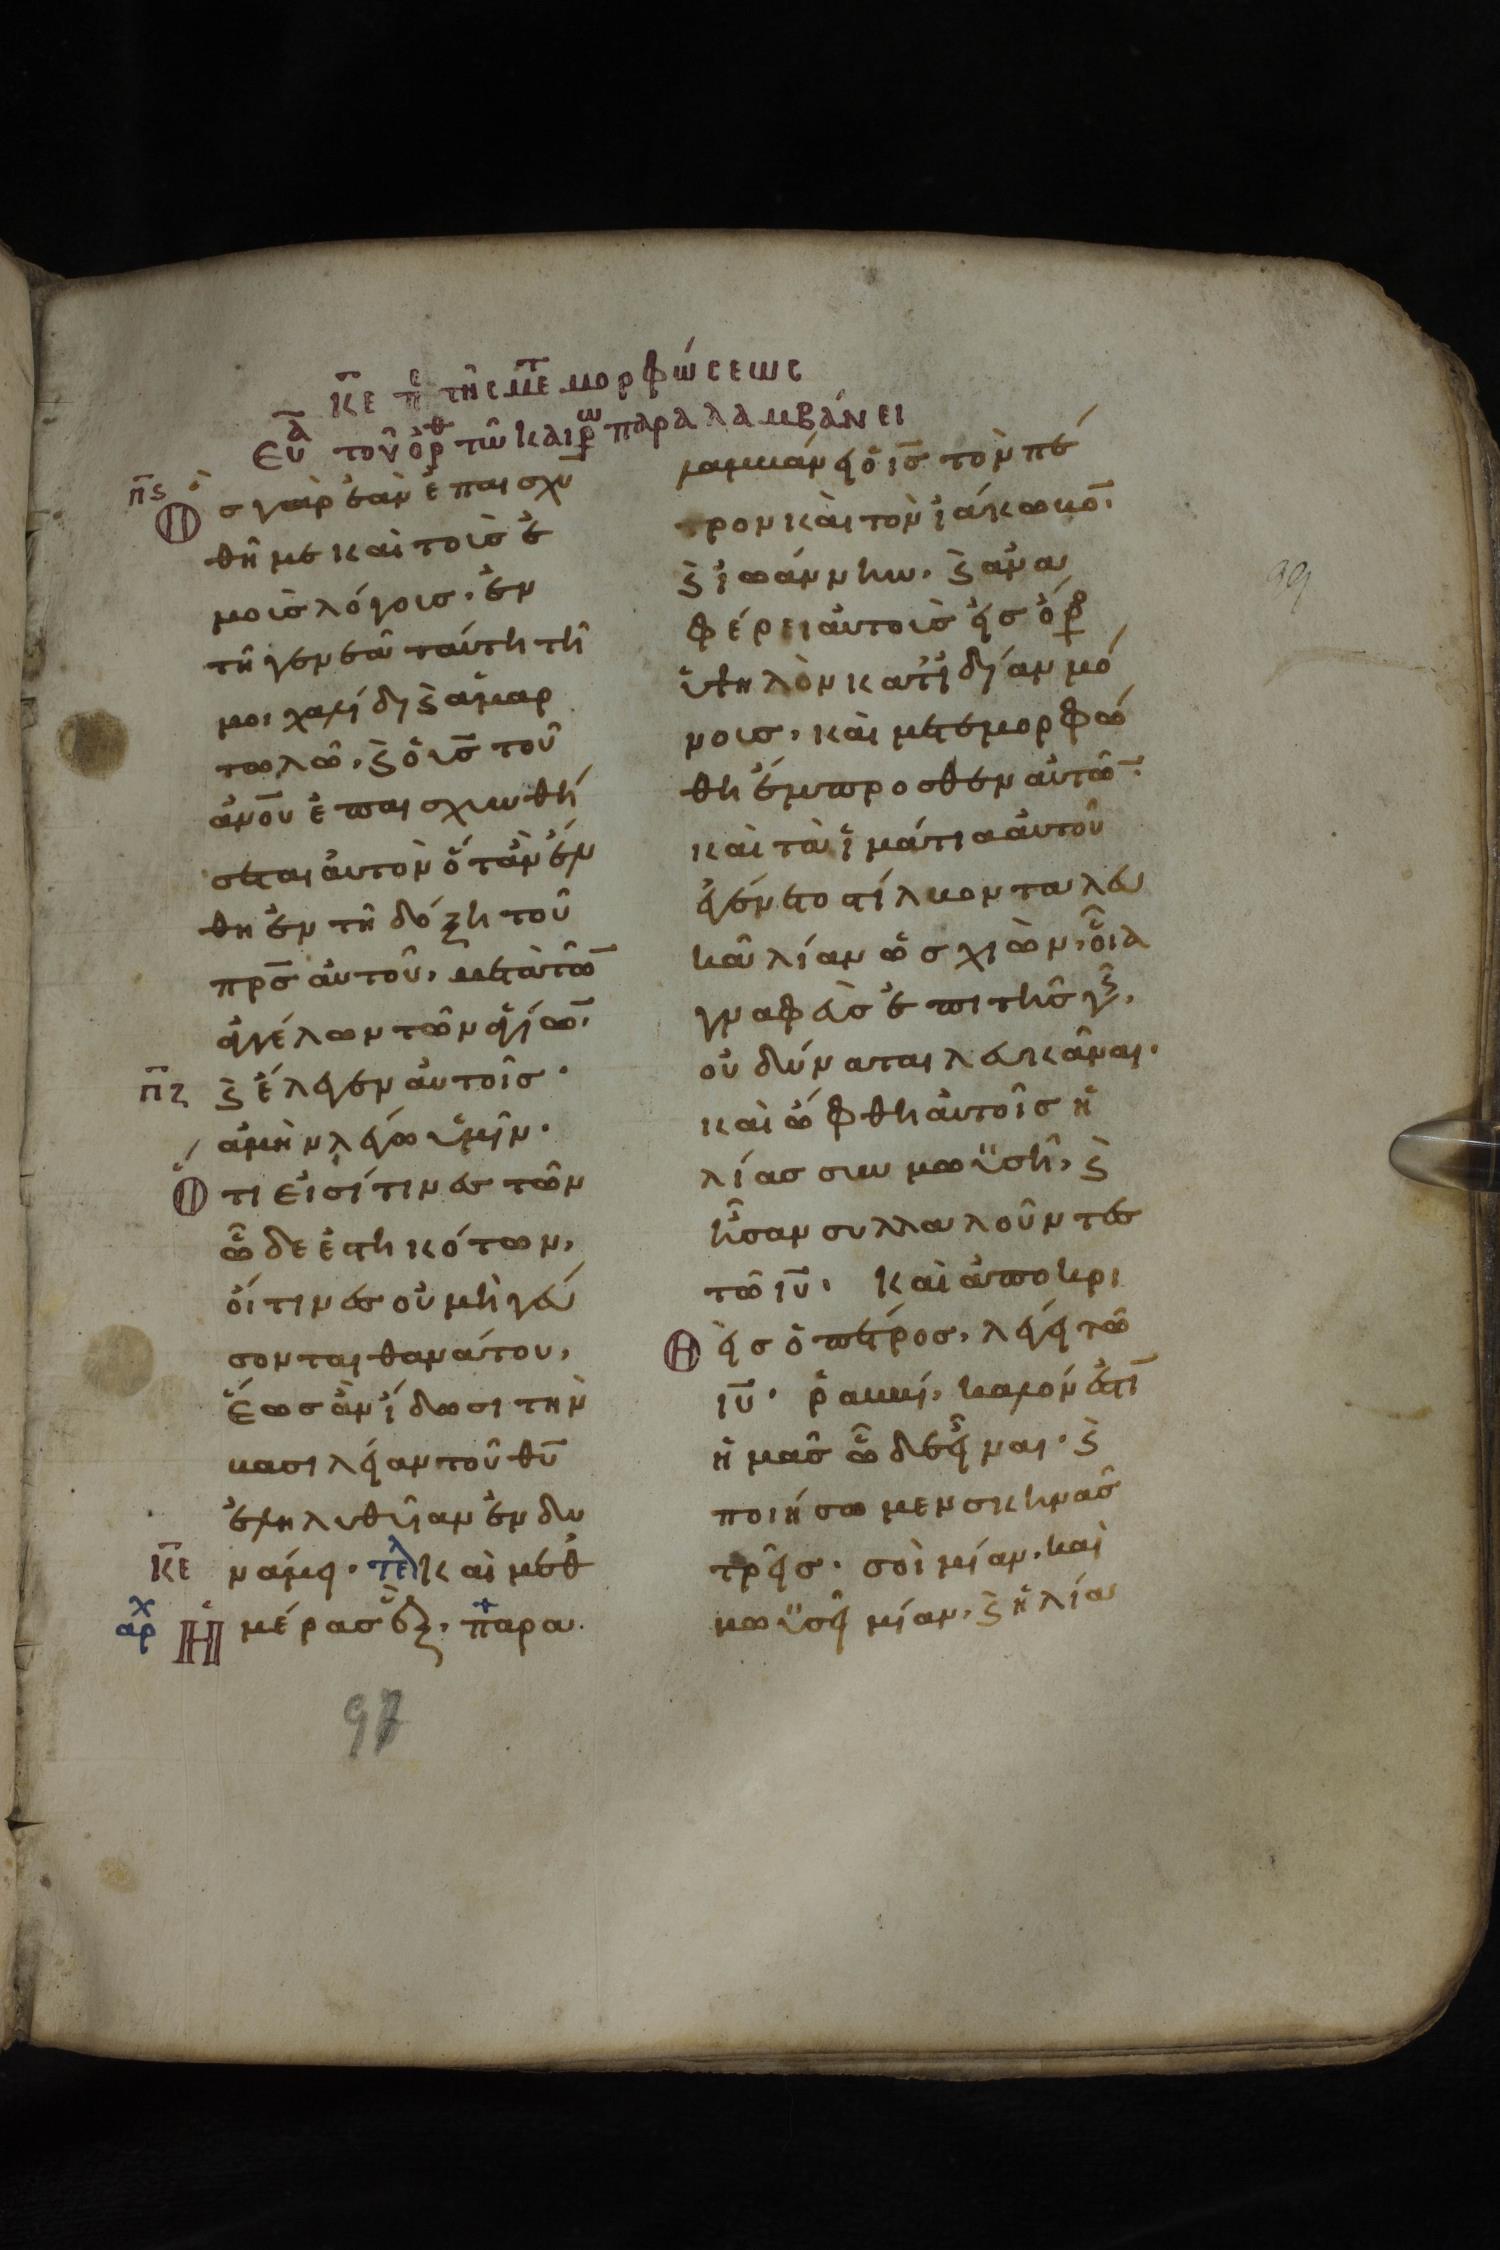 κε πε της μετμορφώσεως
Ευα τοῦ ὄρθ τῶ καιρῶ παραλαμβάνει
πϛ
Ὃς γὰρ ἐὰν ἐπαισχυ
θῆ με καὶ τοὺς ἐ
μοὺς λόγους, ἐν
τῆ γενεᾶ ταύτη τῆ
μοιχαλίδι ϗ ἁμαρ
τωλῶ, ϗ ὁ υἱσ τοῦ
ἀνου ἐπαισχυνθή
σεται αὐτὸν ὅταν ἔλ
θη ἐν τῆ δόξη τοῦ
πρσ αὐτοῦ, μετὰ τῶ
ἀγγέλων τῶν ἁγίω.
πζ
ϗ ἔλεγεν αὐτοῖς·
ἀμὴν λέγω ὑμῖν·
Ὅτι εἰσί τινες τῶν
ὧδε ἑστηκότων,
οἵτινες οὐ μὴ γεύ
σονται θανάτου,
ἕως ἂν ἴδωσι τὴν
βασιλείαν τοῦ θυ
ἐληλυθυῖαν ἐν δυ
κε
νάμει· τελ Καὶ μεθ
αρχ
Ἡμέρας ἓξ, παρα
λαμβάνει ὁ ισ τὸν πέ
τρον καὶ τὸν ἰάκωβο.
ϗ ἰωάννην, ϗ ἀνα
φέρει αὐτοὺς εἰς ὄρο
ὑψηλὸν κατ' ἰδίαν μό
νους, καὶ μετεμορφώ
θη ἔμπροσθεν αὐτῶ·
καὶ τὰ ἱμάτια αὐτοῦ
ἐγένετο στίλβοντα λευ
κὰ λίαν ὡς χιὼν, οἷα
γναφεὺς ἐπὶ τῆς γῆς,
οὐ δύναται λευκᾶναι·
καὶ ὤφθη αὐτοῖς ἠ
λίας συν μωϋσῆ, ϗ
ἦσαν συλλαλοῦντες
τῶ ιυ· Καὶ ἀποκρι
Θεὶς ὁ πέτρος, λέγει τῶ
ιυ· ῥαββί, καλόν ἐστι
ἡμᾶς ὧδε εἶναι· ϗ
ποιήσωμεν σκηνὰς
τρεῖς· σοὶ μίαν, καὶ
μωϋσεῖ μίαν, ϗ ἠλία
99
97